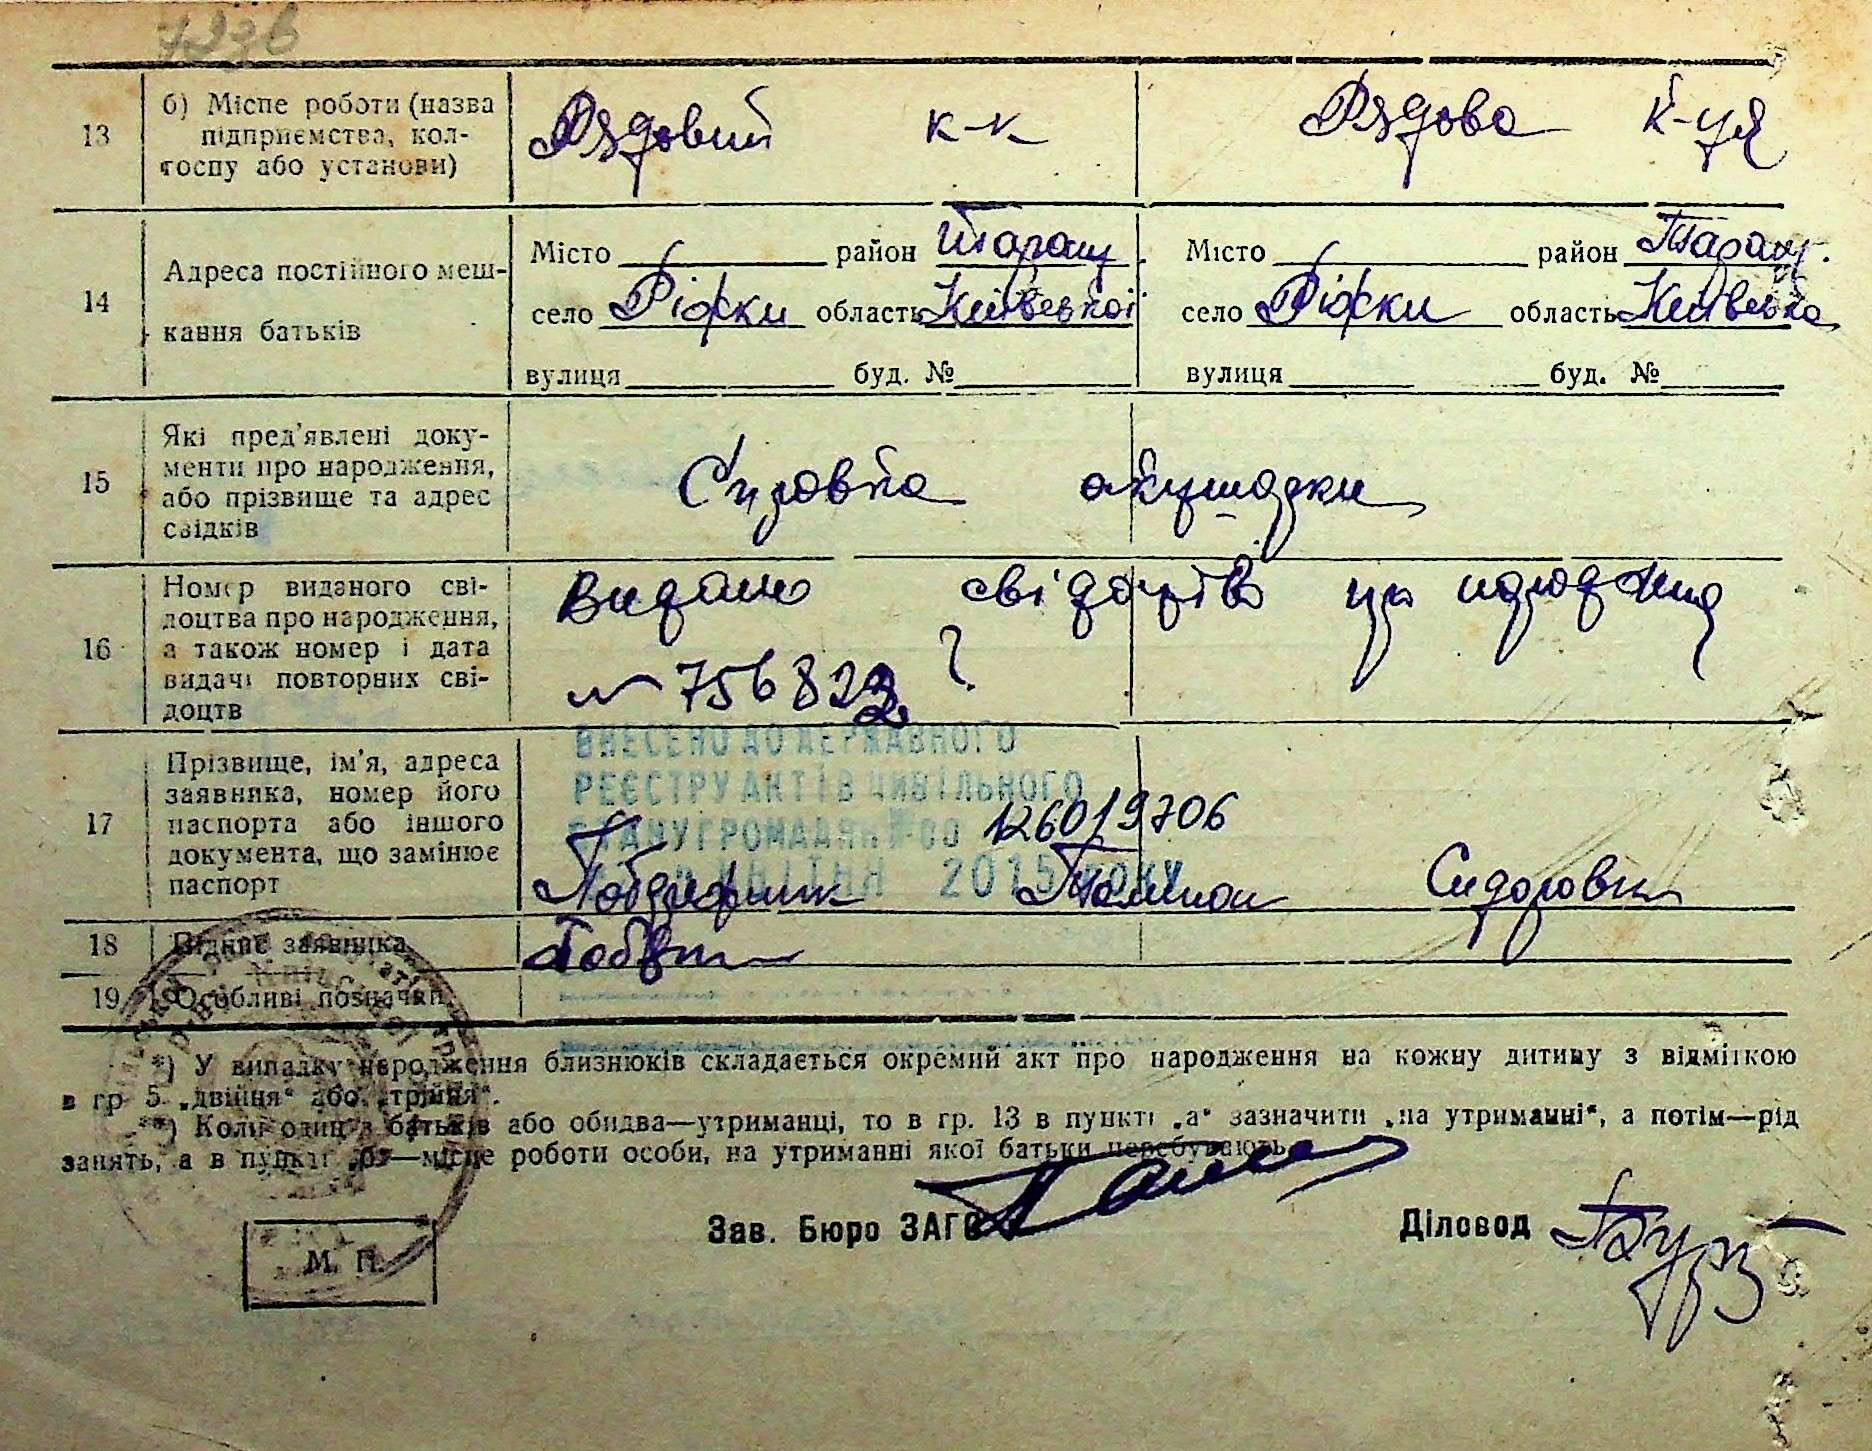 13
б) Місце роботи (назва
підприємства, кол-
госпу або установи)
Рядовий к-к
Рядова к-ця
14
Адреса постійного меш-
кання батьків
Місто район Таращ.
село Ріжки область Київської
вулиця буд. №
Місто район Таращ.
село Ріжки область Київська
вулиця буд. №
15
Які пред'явлені доку-
менти про народження,
або прізвище та адрес
свідків
Справка акушерки
16
Номер виданого сві-
доцтва про народження,
а також номер і дата
видачі повторних сві-
доцтв
Видано свідоцтво
№ 756823
17
Прізвище, ім'я, адреса
заявника, номер його
паспорта або іншого
документа, що замінює
паспорт
ВНЕСЕНО ДО ДЕРЖАВНОГО
РЕЄСТРУ АКТІВ ЦИВІЛЬНОГО
СТАНУ ГРОМАДЯН
КВІТНЯ 2015 РОКУ
126019706
Сидоровна
18
Підпис заявника
19
Особливі позначки
*) У випадку народження близнюків складається окремий акт про народження на кожну дитину з відміткою
в гр 5 „двійня“ або „трійня“.
**) Коли один з батьків або обидва—утриманці, то в гр. 13 в пункті „а“ зазначити „на утриманні“, а потім—рід
занять, а в пункті „б“—місце роботи особи, на утриманні якої батьки перебувають.
Зав. Бюро ЗАГС
Діловод
М. П.